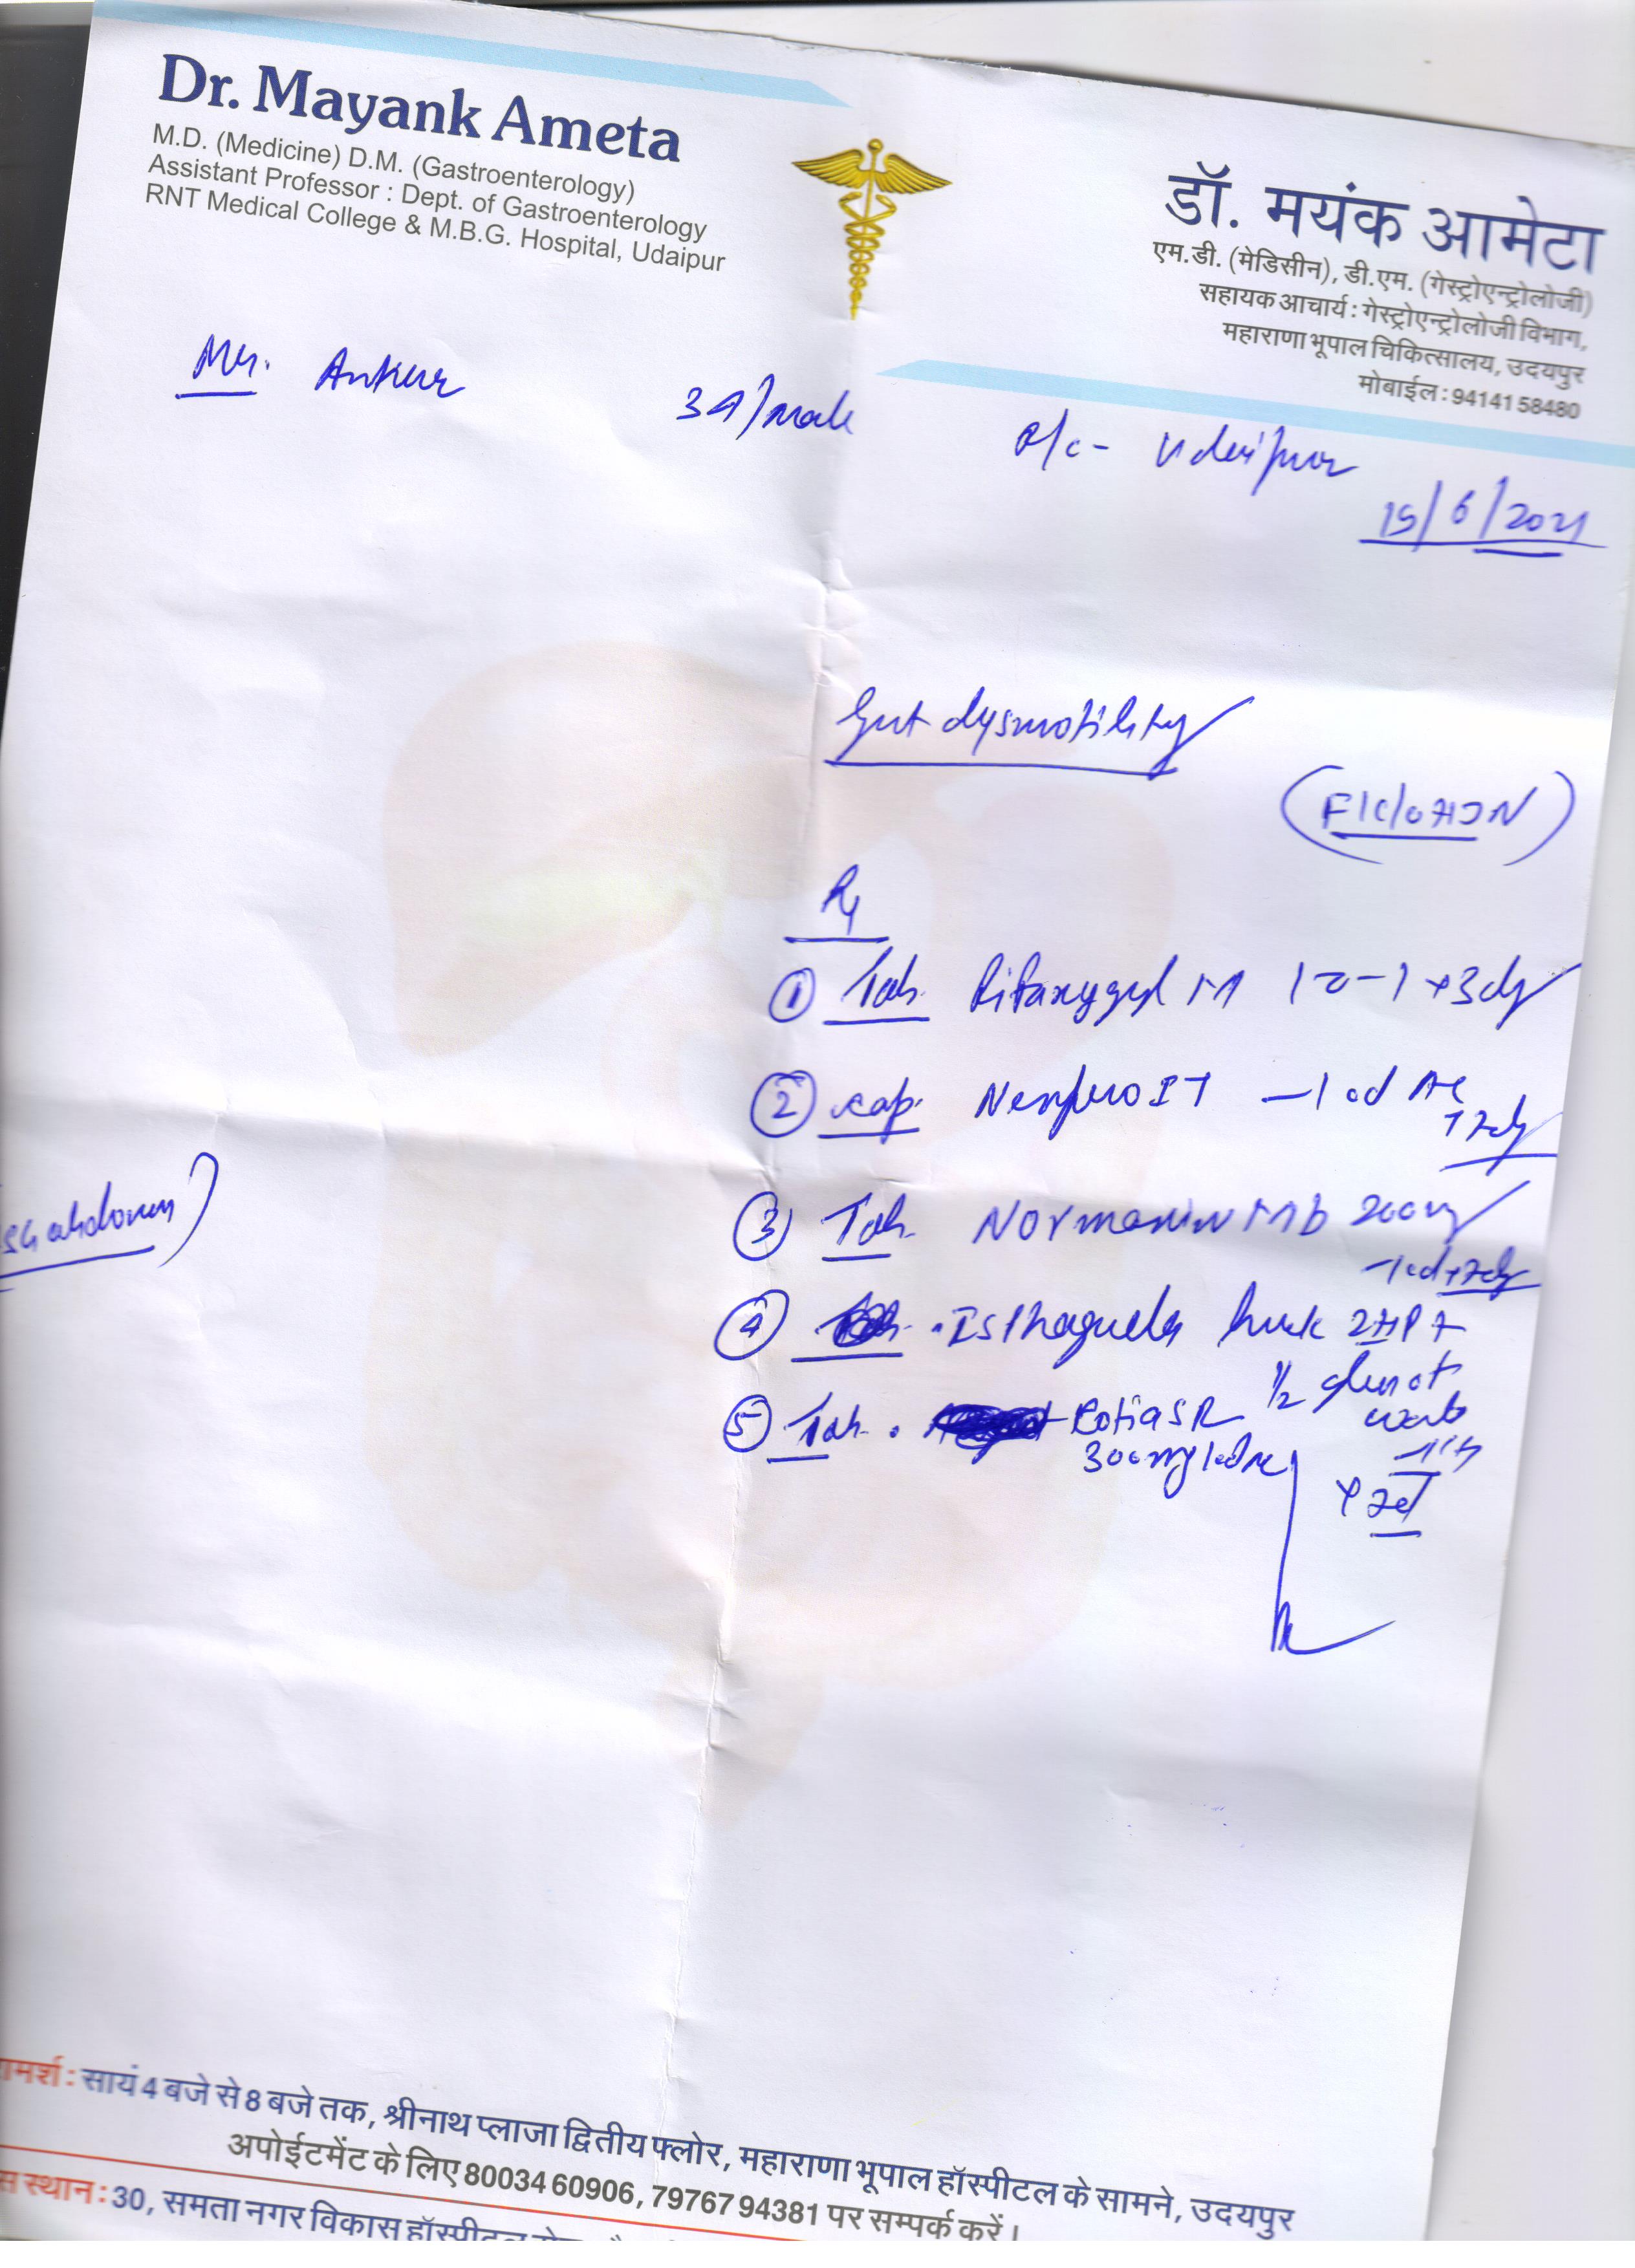 Dr. Mayank Ameta
M.D. (Medicine) D.M. (Gastroenterology)
Assistant Professor : Dept. of Gastroenterology
RNT Medical College & M.B.G. Hospital, Udaipur
डॉ. मयंक आमेटा
एम.डी. (मेडिसीन), डी.एम. (गेस्ट्रोएन्ट्रोलोजी)
सहायक आचार्य : गेस्ट्रोएन्ट्रोलोजी विभाग,
महाराणा भूपाल चिकित्सालय, उदयपुर
मोबाईल : 94141 58480
Mr. Ankur 34/male
Udaipur
15/6/2021
Gut dysmotility
(F/C/O HTN)
Rx
① Tab. Rifaxygyl M 1-0-1 x 3 dy
② cap. Nexpro IT -1 od
③ Tab. Normaxin 200mg
④ Isphagula husk 2
1/2 glass of
⑤ Tab. SR
300mg
abdomen)
ामर्श : सायं 4 बजे से 8 बजे तक, श्रीनाथ प्लाजा द्वितीय फ्लोर, महाराणा भूपाल हॉस्पीटल के सामने, उदयपुर
अपोईटमेंट के लिए 80034 60906, 79767 94381 पर सम्पर्क करें।
स स्थान : 30, समता नगर विकास हॉस्पीटल